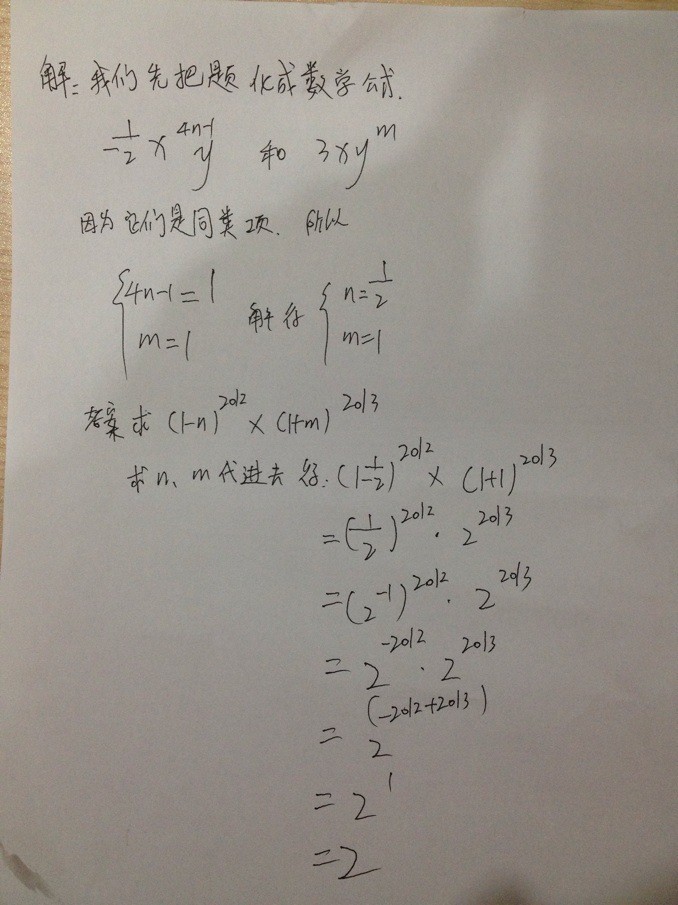 解:我们先把题化成数学公式.
-1/2 x^(4n-1) y 和 3xy^m
因为它们是同类项.所以
{4n-1=1 解得 {n=1/2
m=1 m=1
答案求 (1-n)^2012 × (1+m)^2013
求n、m代进去得:(1-1/2)^2012 × (1+1)^2013
=(1/2)^2012 · 2^2013
=(2^-1)^2012 · 2^2013
=2^-2012 · 2^2013
=2^(-2012+2013)
=2^1
=2